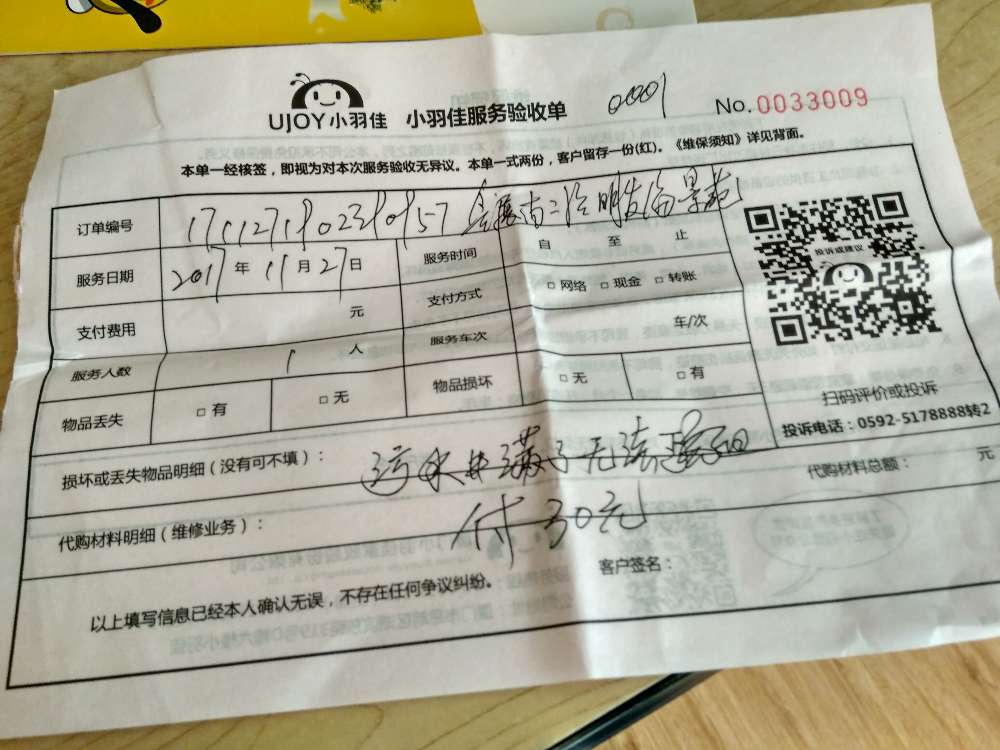 UJOY小羽佳 小羽佳服务验收单 0001 No.0033009
本单一经核签，即视为对本次服务验收无异议。本单一式两份，客户留存一份(红)。《维保须知》详见背面。
订单编号
服务日期 2017 年 11 月 27 日 服务时间 自 至 止
支付费用 元 支付方式 □ 网络 □ 现金 □ 转账
服务人数 1 人 服务车次 车/次
物品丢失 □ 有 □ 无 物品损坏 □ 无 □ 有
投诉或建议
扫码评价或投诉
投诉电话：0592-5178888转2
损坏或丢失物品明细（没有可不填）： 污水井满了无法
代购材料明细（维修业务）： 付30元 代购材料总额： 元
以上填写信息已经本人确认无误，不存在任何争议纠纷。 客户签名：